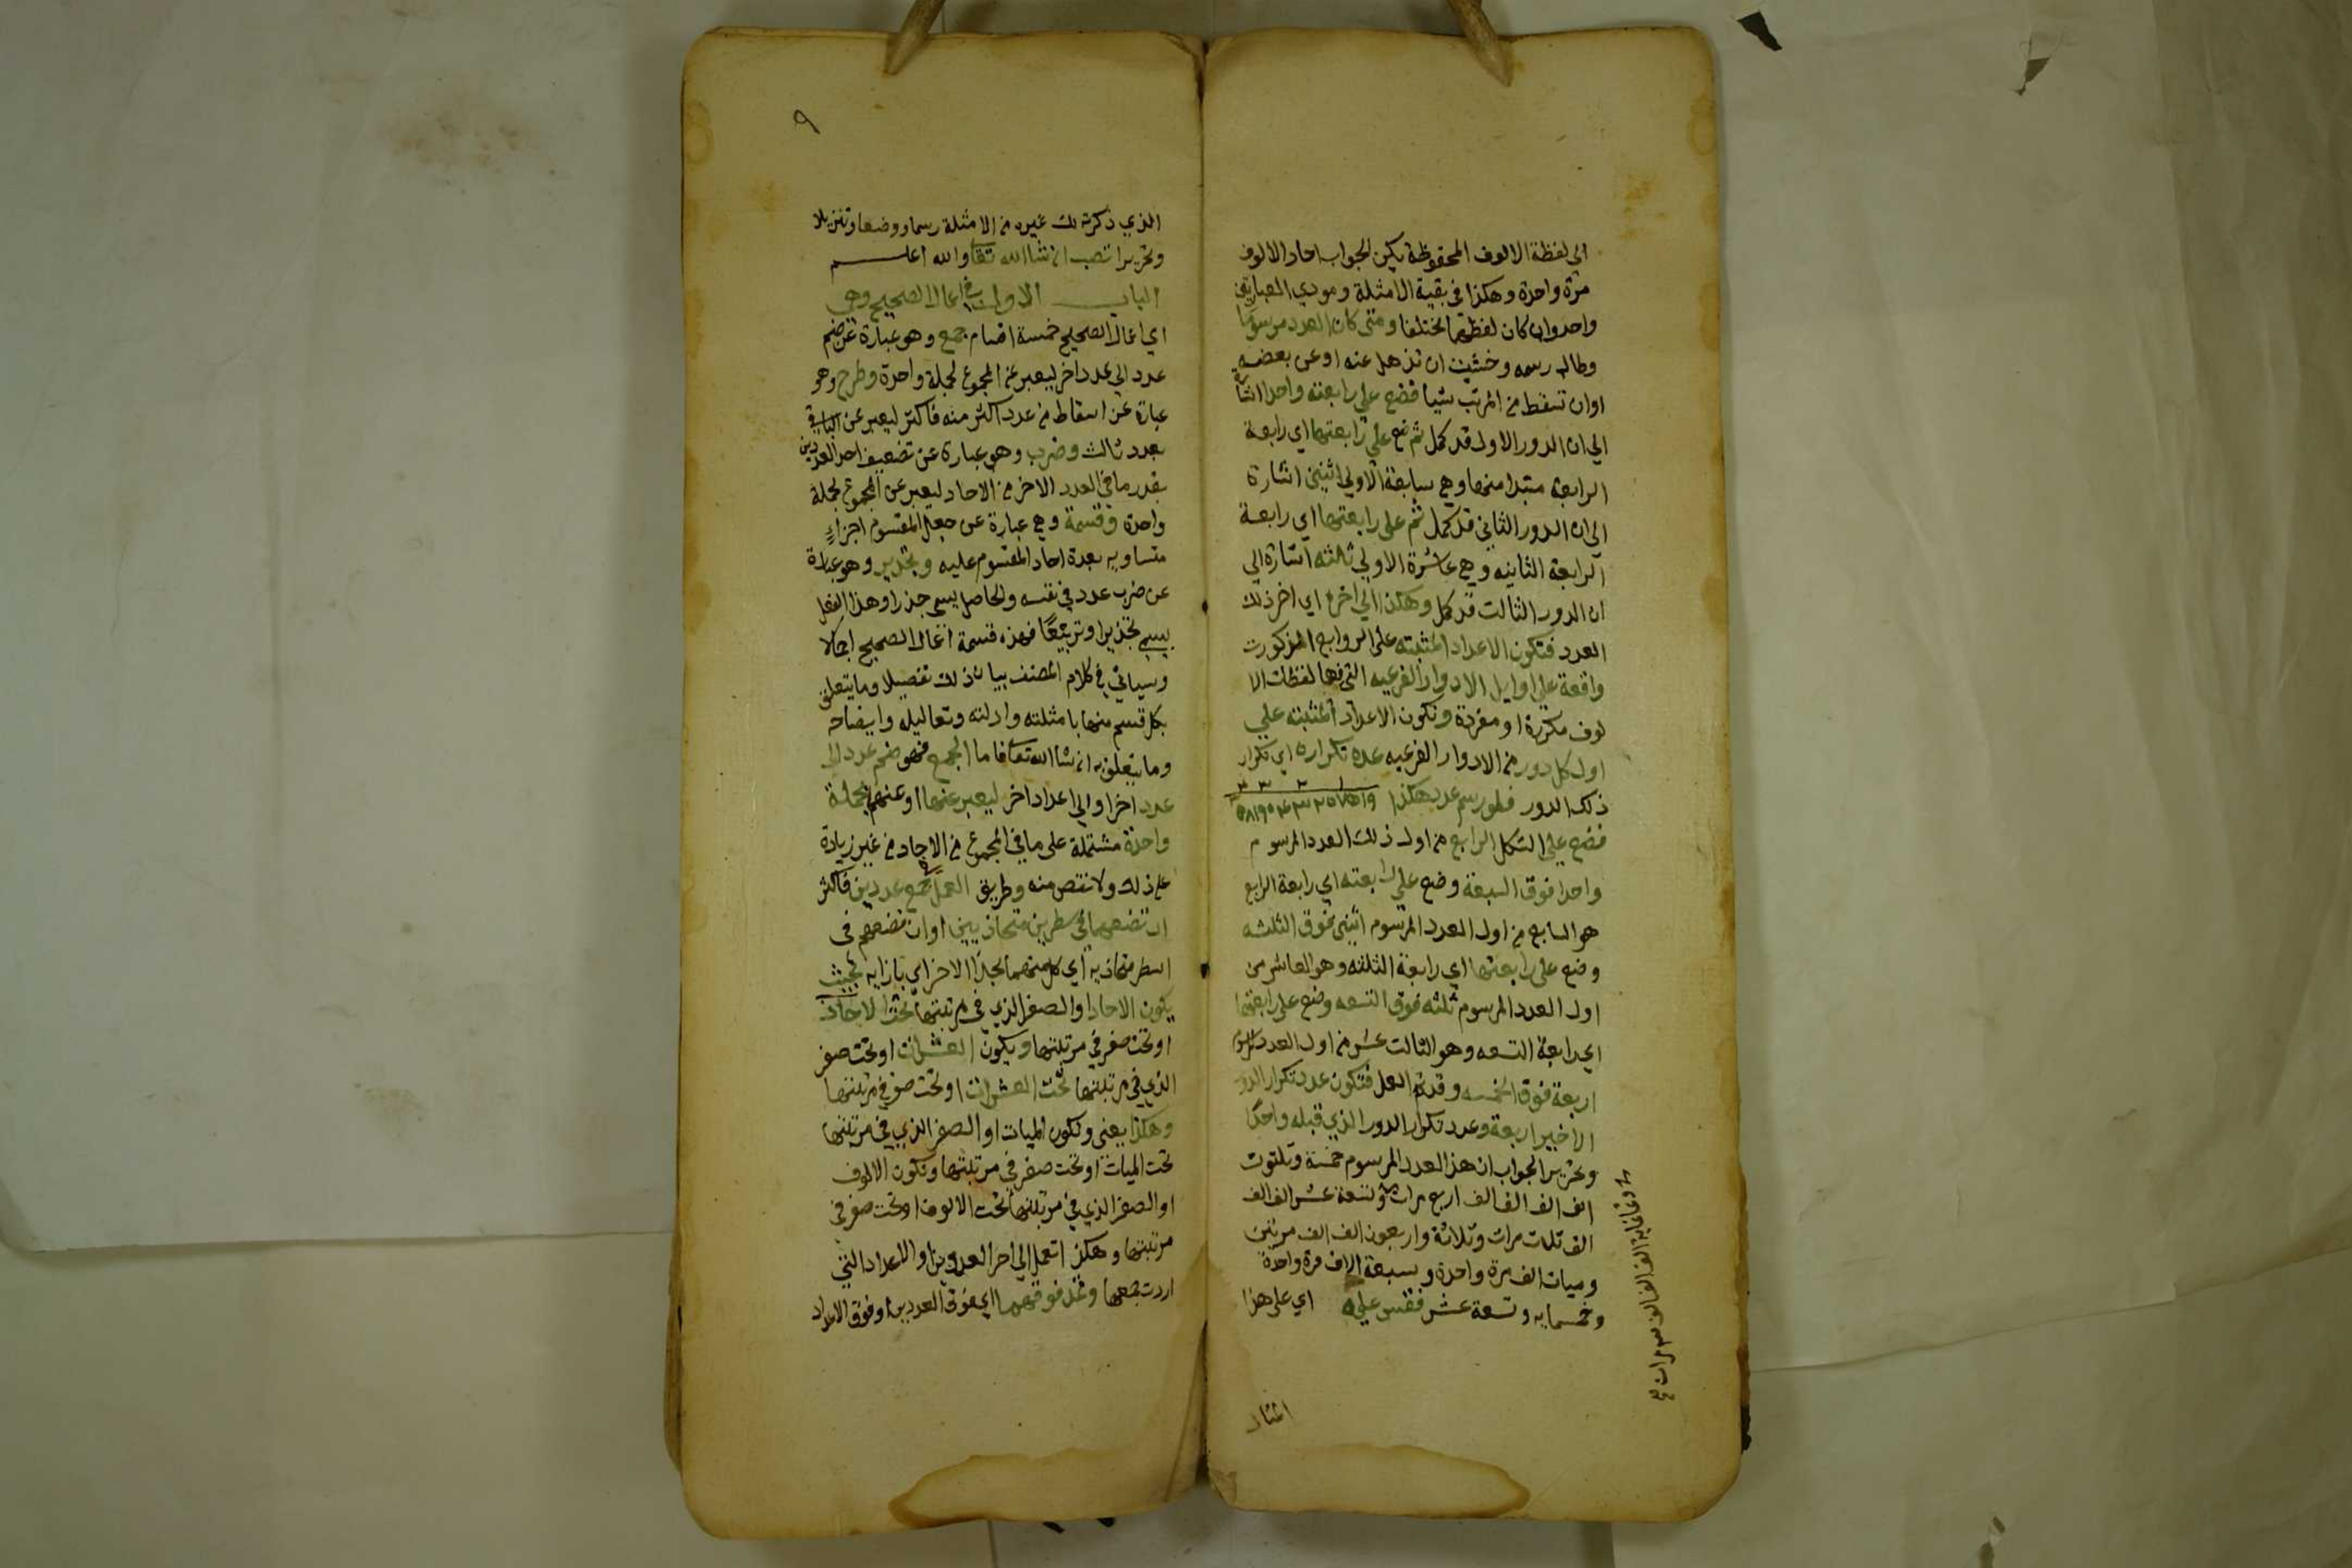 الى لفظة الالوف المحفوظة يكن الجواب احاد الالوف
مرة واحدة وهكذا في بقية الامثلة ومودي العبارتين
واحد وان كان لفظهما مختلفا ومتى كان العدد مرسوما
وطال رسمه وخشيت ان تذهل عنه او عن بعضه
اوان تسقط من المرتب شيا فضع على رابعته واحدا اشارة
الى ان الدور الاول قد كمل ثم ضع على رابعتها اي رابعة
الرابعة مبتدا منها وهي سابعة الاولى اثنين اشارة
الى ان الدور الثاني قد كمل ثم على رابعتها اي رابعة
الرابعة الثانيه وهي عاشرة الاولى ثلثه اشارة الى
ان الدور الثالت قد كمل وهكذا الى اخره اي اخر ذلك
العدد فتكون الاعداد المثبته على الروابع المذكورت
واقعة على اوايل الادوار الفرعيه التي فيها لفظات الا
لوف مكررة او مفردة وتكون الاعداد المثبته على
اول كل دور من الادوار الفرعيه عدة تكراره اي تكرار
ذلك الدور فلو رسم عدد هكذا
فضع على الشكل الرابع من اول ذلك العدد المرسوم
واحدا فوق السبعة وضع على رابعته اي رابعة الرابع
هو السابع من اول العدد المرسوم اثنين فوق الثلثه
وضع على رابعتها اي رابعة الثلثه وهو العاشر من
اول العدد المرسوم ثلثه فوق التسعه وضع على رابعتها
اي رابعة التسعه وهو الثالت عشر من اول العدد المرسوم
اربعة فوق الخمسه وقد تم العمل فتكون عدد تكرار الدور
الاخير اربعة وعدد تكرار الدور الذي قبله واحدا
وتحرير الجواب ان هذا العدد المرسوم خمسة وثلثون
الف الف الف الف اربع مرات وتسعة عشر الف الف
الف ثلاث مرات وثلاثة واربعون الف الف مرتين
وميات الف مرة واحدة وسبعة الاف مرة واحدة
وخمسمايه وتسعة عشر فقس عليه اي على هذا
المثال
٩
الذي ذكرته لك غيره من الامثلة رسما ووضعا وتنزيلا
وتحريرا تصب ان شا الله تعا والله اعلم
الباب الاول في اعمال الصحيح وهي
اي اعمال الصحيح خمسة اقسام جمع وهو عبارة عن ضم
عدد الى عدد اخر ليعبر عن المجموع بجملة واحدة وطرح وهو
عبارة عن اسقاط من عدد اكثر منه فاكثر ليعبر عن الباقي
بعدد ثالث وضرب وهو عبارة عن تضعيف احد العددين
بقدر ما في العدد الاخر من الاحاد ليعبر عن المجموع بجملة
واحدة وقسمة وهي عبارة عن جعل المقسوم اجزاء
متساويه بعدة احاد المقسوم عليه وتجذير وهو عبارة
عن ضرب عدد في نفسه والحاصل يسمى جذرا وهذا الفعل
يسمى تجذيرا وتربيعا فهذه قسمة اعمال الصحيح اجمالا
وسياتي في كلام المصنف بيان ذلك تفصيلا وما يتعلق
بكل قسم منها بامثلته وادلته وتعاليله وايضاحه
وما يتعلق به ان شا الله تعا فاما الجمع فهو ضم عدد الى
عدد اخر او الى اعداد اخر ليعبر عنهما او عنهم بجملة
واحدة مشتملة على ما في المجموع من الاحاد من غير زيادة
على ذلك ولا نقص منه وطريق العمل في جمع عددين فاكثر
ان تضعهما في سطرين متحاذيين او ان تضعهم في
اسطر متحاذيه اي كل منهما بحذا الاخر اي بازايه بحيث
يكون الاحاد او الصفر الذي في مرتبتها تحت الاحاد
او تحت صفر في مرتبتها ويكون العشرات او تحت صفر
الذي في مرتبتها تحت العشرات او تحت صفر في مرتبتها
وهكذا يعني وتكون الميات او الصفر الذي في مرتبتها
تحت الميات او تحت صفر في مرتبتها وتكون الالوف
او الصفر الذي في مرتبتها تحت الالوف او تحت صفر في
مرتبتها وهكذا تعمل الى اخر العددين او الاعداد التي
اردت جمعها وتمد فوقهما اي فوق العددين او فوق الاعداد